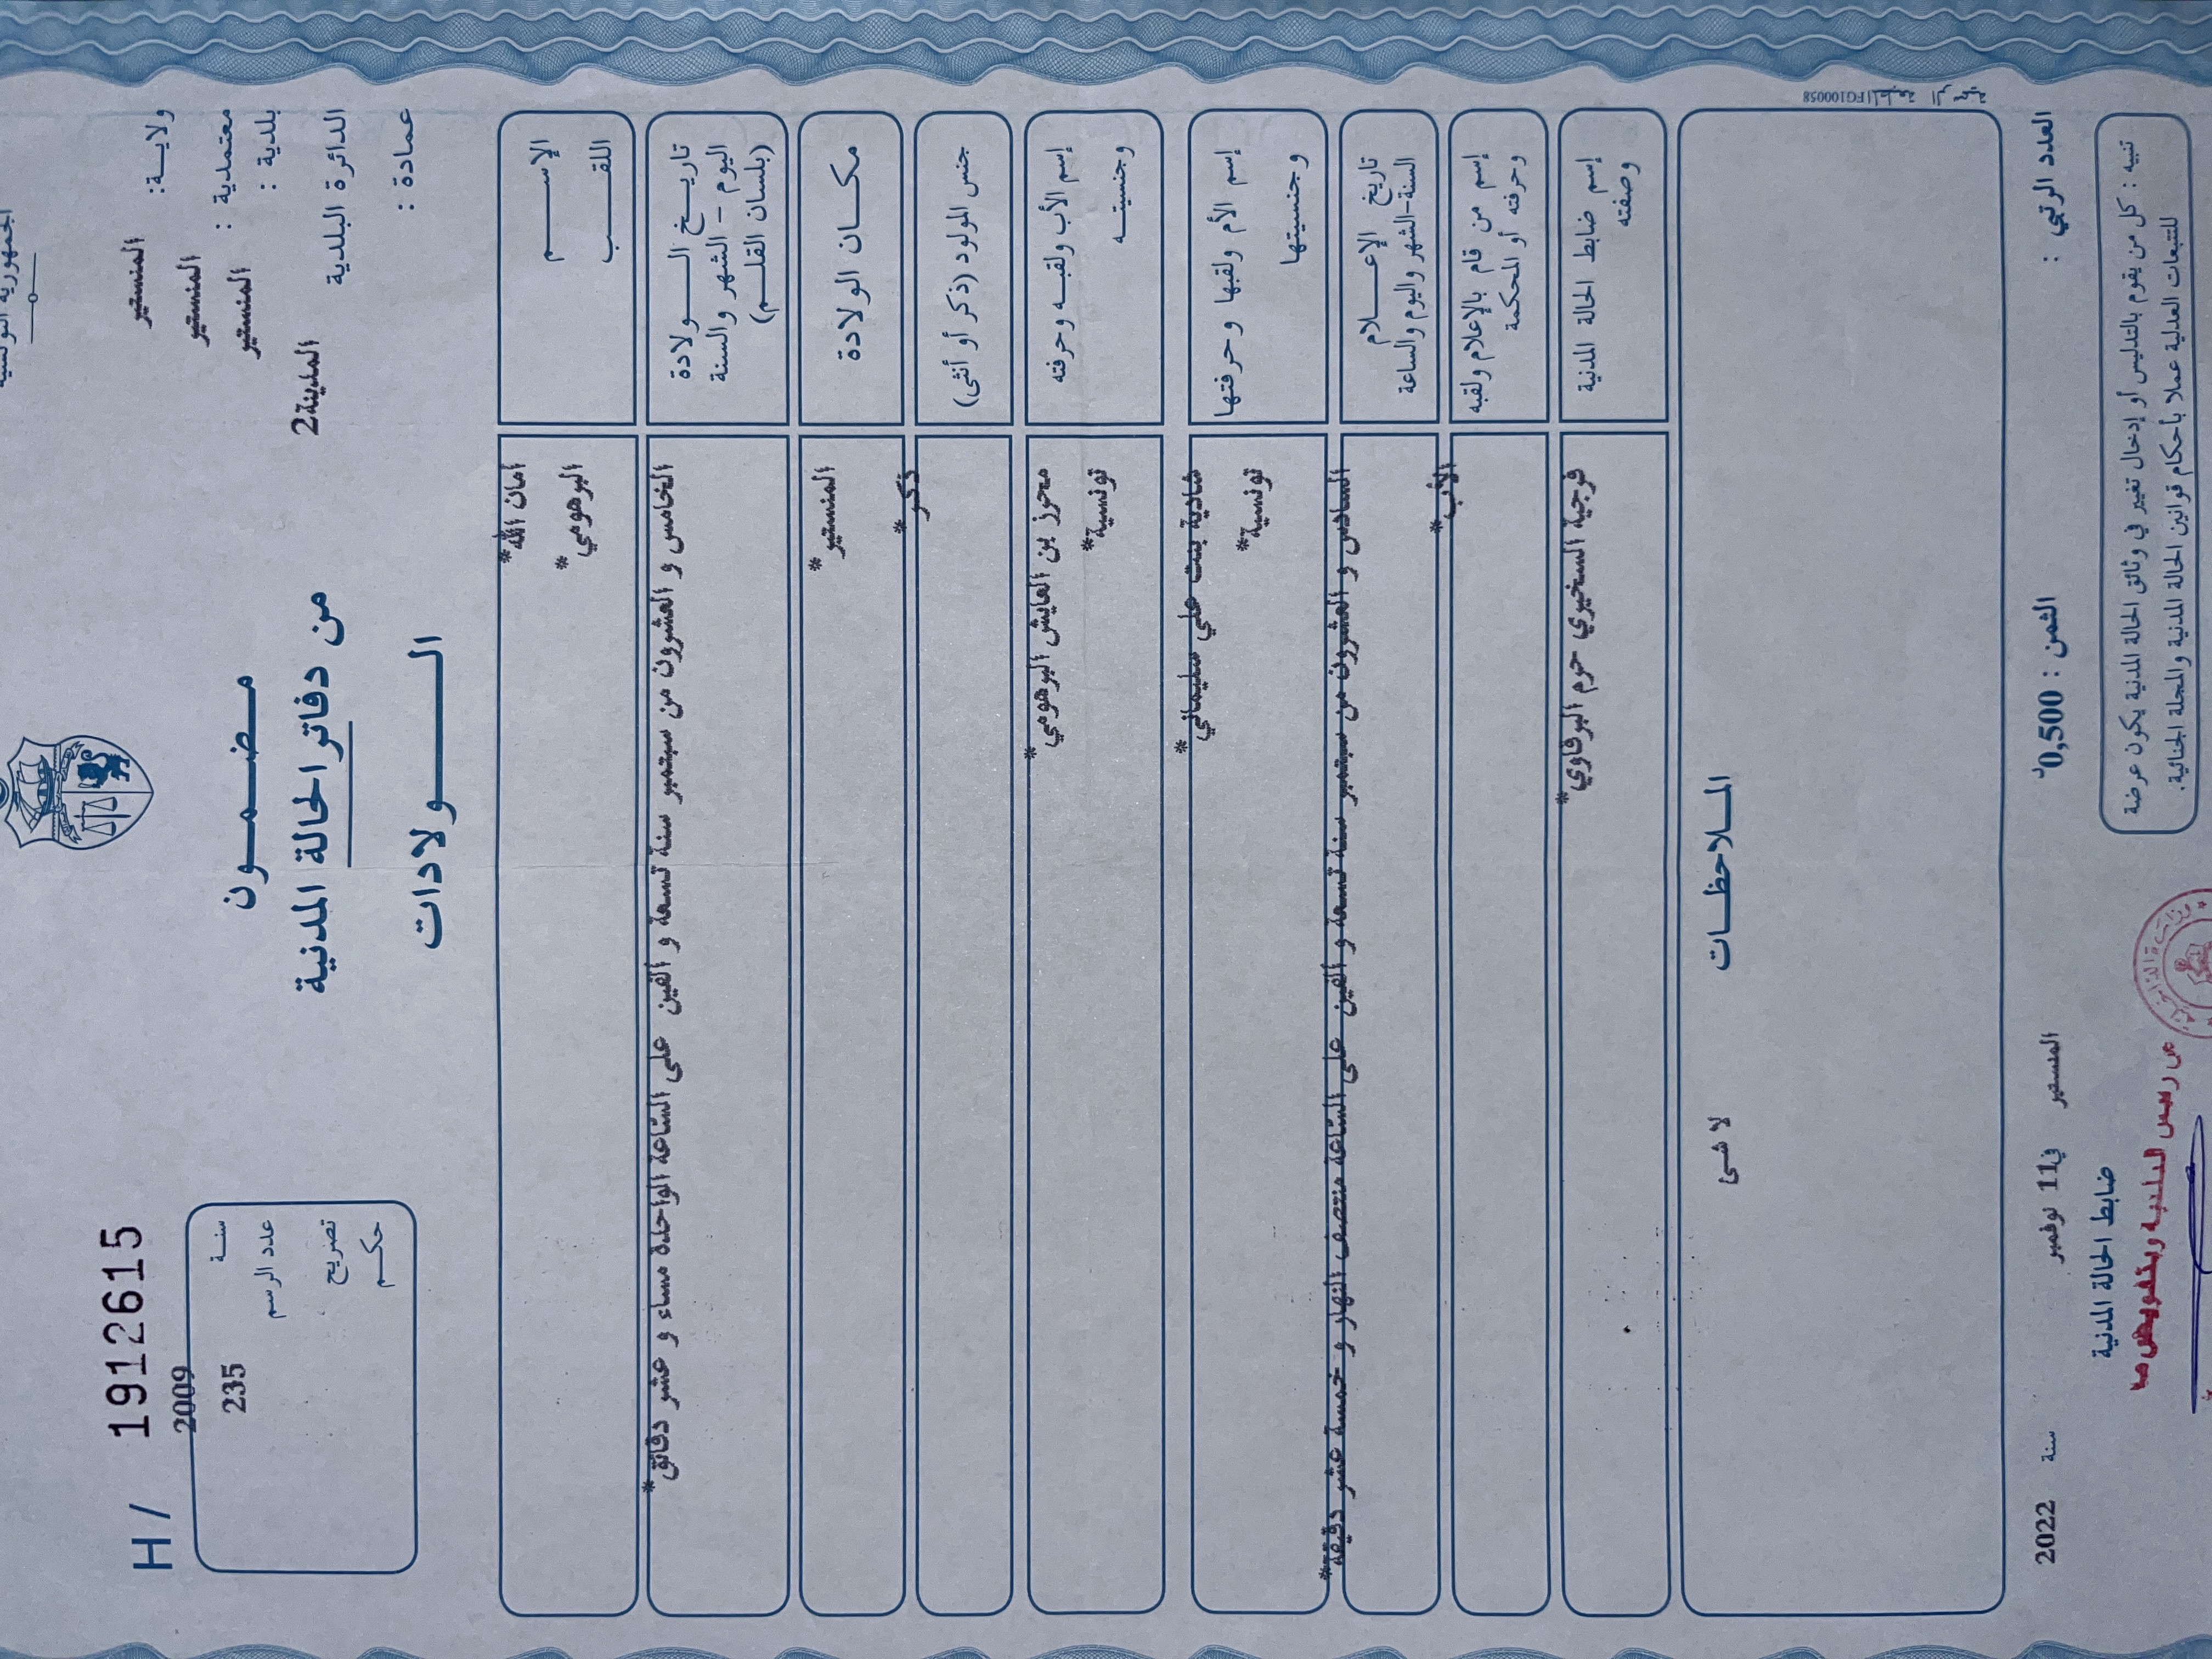 الجمهورية التونسية
H / 1912615
ولاية: المنستير
معتمدية : المنستير
بلدية : المنستير
الدائرة البلدية المدينة2
عمادة :
مضمون
من دفاتر الحالة المدنية
الولادات
سنة 2009
عدد الرسم 235
تصريح
حكم
الإسم أمان الله*
اللقب البرهومي*
تاريخ الولادة
اليوم - الشهر والسنة
(بلسان القلم)
الخامس و العشرون من سبتمبر سنة تسعة و ألفين على الساعة الواحدة مساء و عشر دقائق*
مكان الولادة المنستير*
جنس المولود (ذكر أو أنثى) ذكر*
إسم الأب ولقبه وحرفته محرز بن العايش البرهومي*
وجنسيته تونسية*
إسم الأم ولقبها وحرفتها شادية بنت علي سليماني*
وجنسيتها تونسية*
تاريخ الإعلام
السنة-الشهر واليوم والساعة
السادس و العشرون من سبتمبر سنة تسعة و ألفين على الساعة منتصف النهار و خمسة عشر دقيقة*
إسم من قام بالإعلام ولقبه
وحرفته أو المحكمة
الأب*
إسم ضابط الحالة المدنية
وصفته
فوجية السخيري حرم البرقاوي*
الملاحظات
لا شئ
العدد الرتبي :
الثمن : 0,500د
المنستير في 11 نوفمبر سنة 2022
ضابط الحالة المدنية
عن رئيس البلدية وبتفويض منه
تنبيه : كل من يقوم بالتدليس أو إدخال تغيير في وثائق الحالة المدنية يكون عرضة
للتتبعات العدلية عملا بأحكام قوانين الحالة المدنية والمجلة الجنائية.